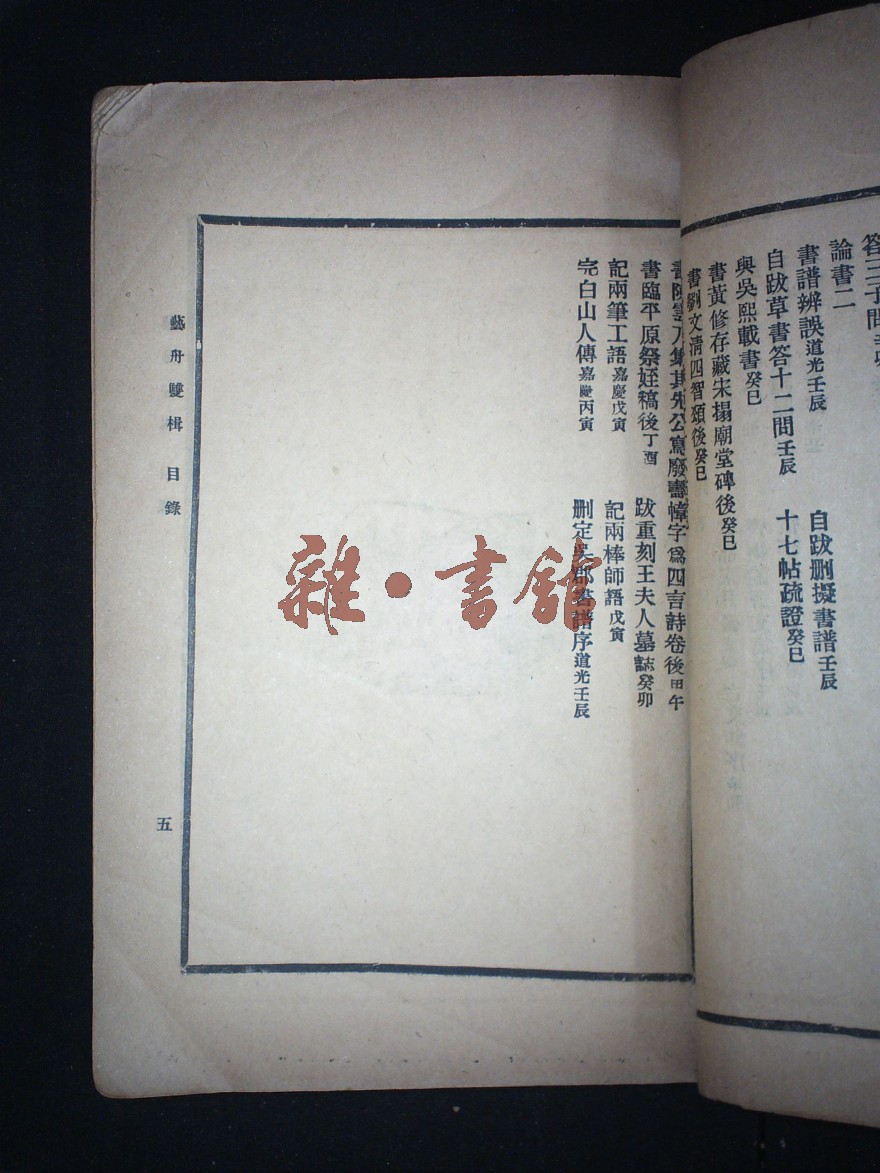 論書二
書譜辨誤道光壬辰 自跋刪擬書譜壬辰
自跋草書答十二問壬辰 十七帖疏證癸巳
與吳熙載書癸巳
書黃修存藏宋搨廟堂碑後癸巳
書劉文清四智頌後癸巳
集其先公寫廢畫幛字爲四言詩卷後甲午
書臨平原祭姪稿後丁酉 跋重刻王夫人墓誌癸卯
記兩筆工語嘉慶戊寅 記兩棒師語戊寅
完白山人傳嘉慶丙寅 刪定吳郡書譜序道光壬辰
藝舟雙楫 目錄
五
雜·書館